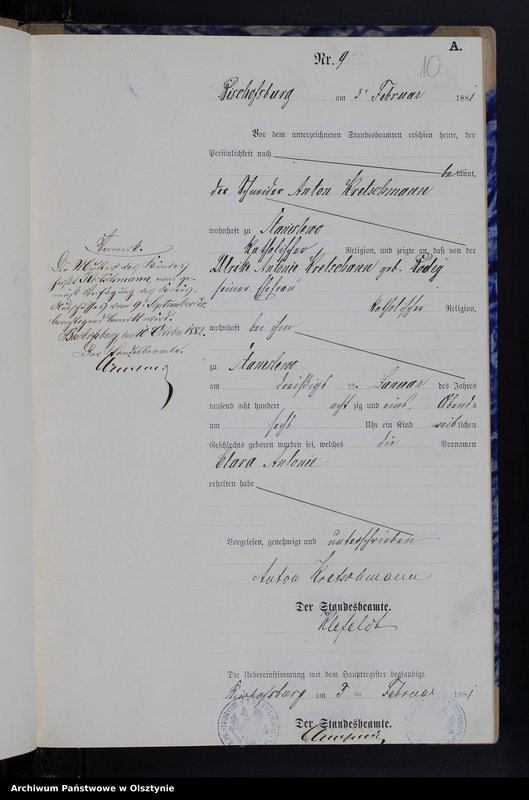 A.
Nr. 9
10
Bischofsburg am 3 Februar 1881
Vor dem unterzeichneten Standesbeamten erschien heute, der
Persönlichkeit nach
be kannt,
der Schneider Anton Kretschmann
wohnhaft zu Stanislewo
katholischer Religion, und zeigte an, daß von der
Antonie Kretschmann geb.
seiner Ehefrau
katholischer Religion,
wohnhaft bei ihm
zu Stanislewo
am dreißigst en Januar des Jahres
tausend acht hundert acht zig und eins, Abends
um sechs Uhr ein Kind weiblichen
Geschlechts geboren worden sei, welches die Vornamen
Clara Antonie
erhalten habe
Vorgelesen, genehmigt und unterschrieben
Anton Kretschmann
Der Standesbeamte.
Klefeldt
Die Uebereinstimmung mit dem Hauptregister beglaubigt.
Bischofsburg am 3 ten Februar 1881
Der Standesbeamte.
Vermerk.
Die Mutter des Kindes
vom 9. September
Bischofsburg den 10 October 1882.
Der Standesbeamte.
Archiwum Państwowe w Olsztynie